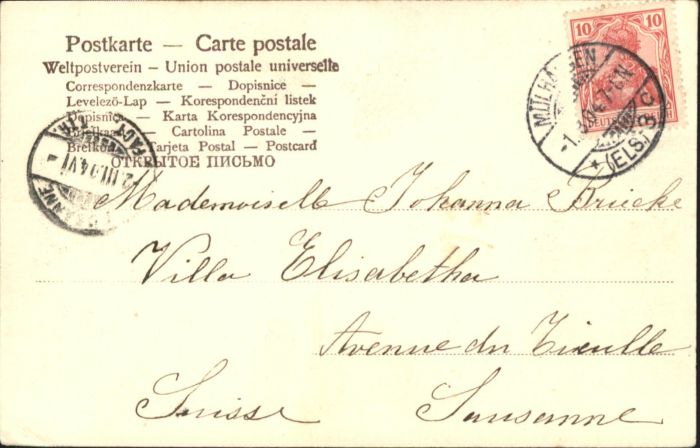 Postkarte — Carte postale
Weltpostverein – Union postale universelle
Correspondenzkarte – Dopisnice
Levelező-Lap – Korespondenční listek
Dopisnica – Karta Korespondencyjna
– Cartolina Postale –
Tarjeta Postal – Postcard
ОТКРЫТОЕ ПИСЬМО
10 10
MÜLHAUSEN
(ELS.) 3 C
FACT.
2.III.04.VI
Mademoiselle Johanna Brücke
Villa Elisabetha
Avenue du
Suisse Lausanne